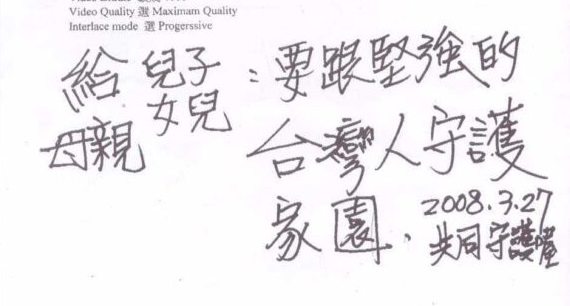 Video Quality 選 Maximam Quality
Interlace mode 選 Progerssive
給 兒子 : 要跟堅強的
女兒
母親 台灣人守護
家園. 2008.3.27
共同守護